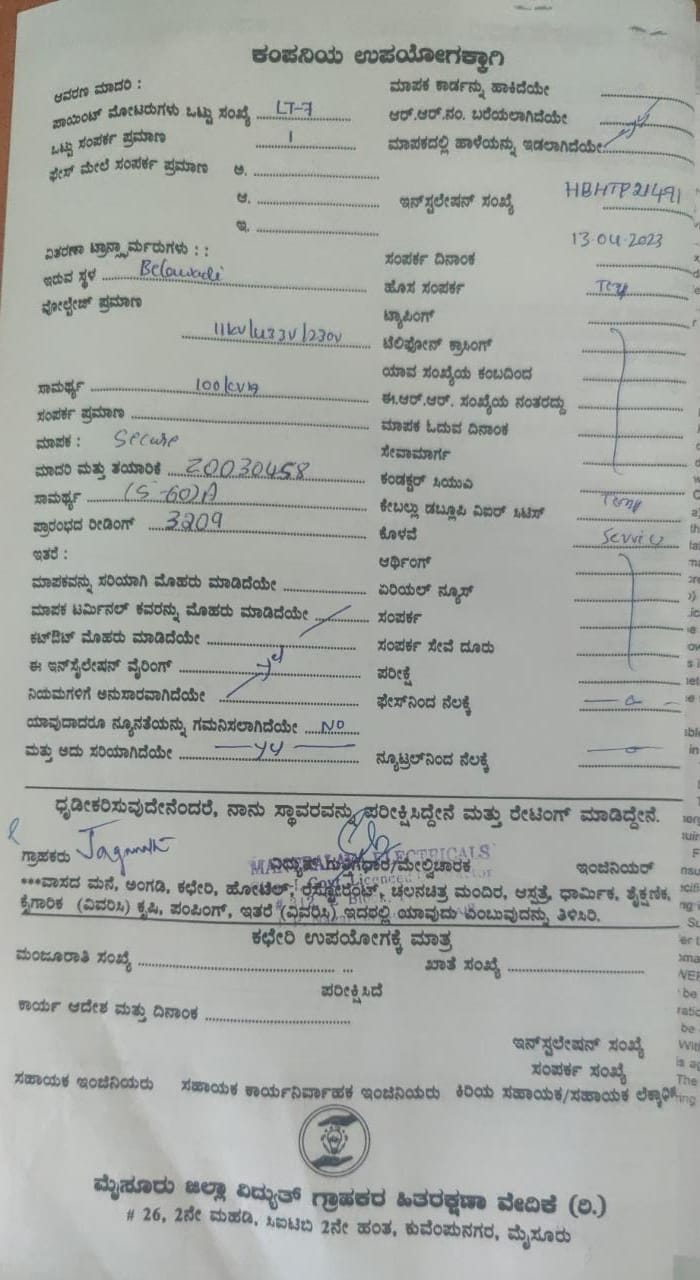 ಕಂಪನಿಯ ಉಪಯೋಗಕ್ಕಾಗಿ
ಆವರಣ ಮಾದರಿ :
ಪಾಯಿಂಟ್ ಮೋಟರುಗಳು ಒಟ್ಟು ಸಂಖ್ಯೆ LT-7
ಒಟ್ಟು ಸಂಪರ್ಕ ಪ್ರಮಾಣ 1
ಫೇಸ್ ಮೇಲೆ ಸಂಪರ್ಕ ಪ್ರಮಾಣ ಅ.
ಆ.
ಇ.
ವಿತರಣಾ ಟ್ರಾನ್ಸ್ಫಾರ್ಮರುಗಳು : :
ಇರುವ ಸ್ಥಳ Belawadi
ವೋಲ್ಟೇಜ್ ಪ್ರಮಾಣ
11KV/433V/230V
ಸಾಮರ್ಥ್ಯ 100KVA
ಸಂಪರ್ಕ ಪ್ರಮಾಣ
ಮಾಪಕ : Secure
ಮಾದರಿ ಮತ್ತು ತಯಾರಿಕೆ 20030458
ಸಾಮರ್ಥ್ಯ (5-60)A
ಪ್ರಾರಂಭದ ರೀಡಿಂಗ್ 3209
ಇತರೆ :
ಮಾಪಕವನ್ನು ಸರಿಯಾಗಿ ಮೊಹರು ಮಾಡಿದೆಯೇ
ಮಾಪಕ ಟರ್ಮಿನಲ್ ಕವರನ್ನು ಮೊಹರು ಮಾಡಿದೆಯೇ
ಕಟ್‌ಔಟ್ ಮೊಹರು ಮಾಡಿದೆಯೇ
ಈ ಇನ್‌ಸ್ಟಲೇಷನ್ ವೈರಿಂಗ್
ನಿಯಮಗಳಿಗೆ ಅನುಸಾರವಾಗಿದೆಯೇ
ಯಾವುದಾದರೂ ನ್ಯೂನತೆಯನ್ನು ಗಮನಿಸಲಾಗಿದೆಯೇ NO
ಮತ್ತು ಅದು ಸರಿಯಾಗಿದೆಯೇ
ಮಾಪಕ ಕಾರ್ಡನ್ನು ಹಾಕಿದೆಯೇ
ಆರ್.ಆರ್.ನಂ. ಬರೆಯಲಾಗಿದೆಯೇ
ಮಾಪಕದಲ್ಲಿ ಹಾಳೆಯನ್ನು ಇಡಲಾಗಿದೆಯೇ
ಇನ್‌ಸ್ಟಲೇಷನ್ ಸಂಖ್ಯೆ HBHTP21491
13-04-2023
ಸಂಪರ್ಕ ದಿನಾಂಕ
ಹೊಸ ಸಂಪರ್ಕ
ಟ್ಯಾಪಿಂಗ್
ಟೆಲಿಫೋನ್ ಕ್ರಾಸಿಂಗ್
ಯಾವ ಸಂಖ್ಯೆಯ ಕಂಬದಿಂದ
ಈ.ಆರ್.ಆರ್. ಸಂಖ್ಯೆಯ ನಂತರದ್ದು
ಮಾಪಕ ಓದುವ ದಿನಾಂಕ
ಸೇವಾಮಾರ್ಗ
ಕಂಡಕ್ಟರ್ ಸಿಯುವಿ
ಕೇಬಲ್ಲು ಡಬ್ಲೂಪಿ ವಿಐಆರ್ ಸಿಟಿಸ್ Temp
ಕೊಳವೆ Service
ಆರ್ಥಿಂಗ್
ಏರಿಯಲ್ ಫ್ಯೂಸ್
ಸಂಪರ್ಕ
ಸಂಪರ್ಕ ಸೇವೆ ದೂರು
ಪರೀಕ್ಷೆ
ಫೇಸ್‌ನಿಂದ ನೆಲಕ್ಕೆ
ನ್ಯೂಟ್ರಲ್‌ನಿಂದ ನೆಲಕ್ಕೆ
ಧೃಡೀಕರಿಸುವುದೇನೆಂದರೆ, ನಾನು ಸ್ಥಾವರವನ್ನು ಪರೀಕ್ಷಿಸಿದ್ದೇನೆ ಮತ್ತು ರೇಟಿಂಗ್ ಮಾಡಿದ್ದೇನೆ.
ಗ್ರಾಹಕರು ವಿದ್ಯುತ್ ಗುತ್ತಿಗೆದಾರ/ಮೇಲ್ವಿಚಾರಕ ಇಂಜಿನಿಯರ್
***ವಾಸದ ಮನೆ, ಅಂಗಡಿ, ಕಛೇರಿ, ಹೋಟೆಲ್, ರೆಸ್ಟೋರೆಂಟ್, ಚಲನಚಿತ್ರ ಮಂದಿರ, ಆಸ್ಪತ್ರೆ, ಧಾರ್ಮಿಕ, ಶೈಕ್ಷಣಿಕ,
ಕೈಗಾರಿಕ (ವಿವರಿಸಿ) ಕೃಷಿ, ಪಂಪಿಂಗ್, ಇತರೆ (ವಿವರಿಸಿ) ಇದರಲ್ಲಿ ಯಾವುದು ಎಂಬುವುದನ್ನು ತಿಳಿಸಿರಿ.
ಕಛೇರಿ ಉಪಯೋಗಕ್ಕೆ ಮಾತ್ರ
ಮಂಜೂರಾತಿ ಸಂಖ್ಯೆ ಖಾತೆ ಸಂಖ್ಯೆ
ಪರೀಕ್ಷಿಸಿದೆ
ಕಾರ್ಯ ಆದೇಶ ಮತ್ತು ದಿನಾಂಕ
ಇನ್‌ಸ್ಟಲೇಷನ್ ಸಂಖ್ಯೆ
ಸಂಪರ್ಕ ಸಂಖ್ಯೆ
ಸಹಾಯಕ ಇಂಜಿನಿಯರು ಸಹಾಯಕ ಕಾರ್ಯನಿರ್ವಾಹಕ ಇಂಜಿನಿಯರು ಕಿರಿಯ ಸಹಾಯಕ/ಸಹಾಯಕ
ಮೈಸೂರು ಜಿಲ್ಲಾ ವಿದ್ಯುತ್ ಗ್ರಾಹಕರ ಹಿತರಕ್ಷಣಾ ವೇದಿಕೆ (ರಿ.)
# 26, 2ನೇ ಮಹಡಿ, ಸಿಐಟಿಬಿ 2ನೇ ಹಂತ, ಕುವೆಂಪುನಗರ, ಮೈಸೂರು